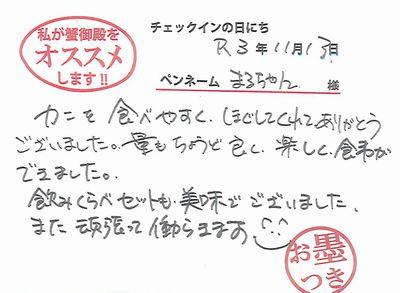 私が蟹御殿を
オススメ
します!!
チェックインの日にち
R3年11月13日
ペンネーム まるちゃん 様
カニを食べやすく、ほぐしてくれてありがとう
ございました。量もちょうど良く、楽しく食事が
できました。
飲みくらべセットも美味でございました。
また頑張って働らきます
お墨
つき